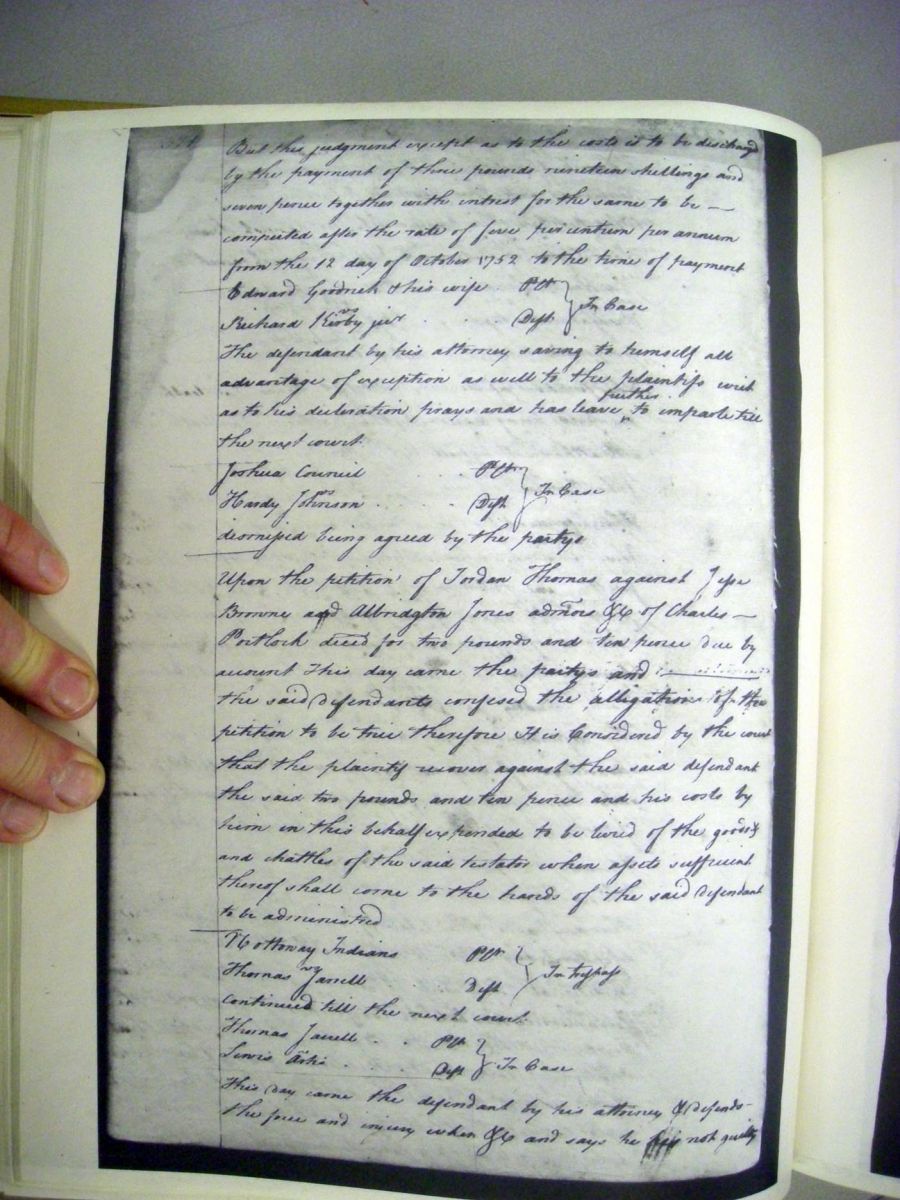 But this judgment except as to the costs is to be dischargd
by the payment of three pounds nineteen shillings and
seven pence together with intrest for the same to be —
computed after the rate of five per centum per annum
from the 12 day of October 1752 to the time of payment
Edward Goodrich & his wife . Plt
vs } In Case
Richard Kirby junr . . Deft
The defendant by his attorney saving to himself all
advantage of exception as well to the plaintifs writ
as to his decleration prays and has leave further to imparle till
the next court
Joshua Council . . Pltr
vs } In Case
Hardy Johnson . . . . Deft
dismissed being agreed by the partys
Upon the petition of Jordan Thomas against Jesse
Browne and Albridgton Jones admors &c of Charles —
Portlock deced for two pounds and ten pence due by
account This day came the partys and
the said Defendants confesed the alligation of the
petition to be true therefore It is Considered by the court
that the plaintif recover against the said defendant
the said two pounds and ten pence and his costs by
him in this behalf expended to be levied of the goods &
and chattles of the said testator when assets sufficient
thereof shall come to the hands of the said Defendant
to be administred
Nottoway Indians Plt
vs } In trespass
Thomas Jarrell Deft
Continued till the next court
Thomas Jarrell . . Plt
vs } In Case
Lewis Artis . . . Deft
This day came the defendant by his attorney & defends
the force and injury when &c and says he is not guilty